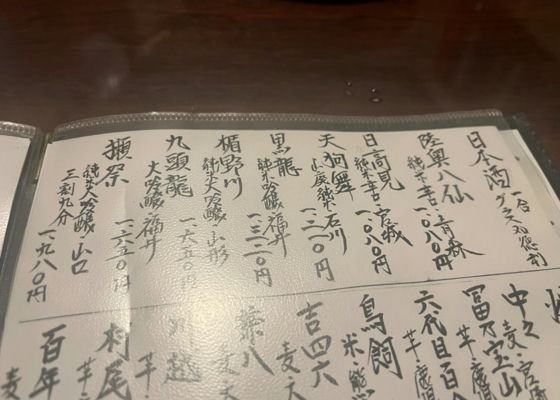 日本酒 一合
グラス又は徳利
陸奥八仙
純米辛口・青森
一、〇八〇円
日高見
純米辛口・宮城
一、〇八〇円
天狗舞
山廃純米・石川
一、二一〇円
黒龍
純米吟醸・福井
一、三二〇円
楯野川
純米大吟醸・山形
一、六五〇円
九頭龍
大吟醸・福井
一、六五〇円
獺祭
純米大吟醸・山口
三割九分
一、九八〇円
中々
麦・宮崎
冨乃宝山
芋・鹿児
六代目百合
芋・鹿児
鳥飼
米・熊
吉四六
麦・大
兼八
麦・大
川越
芋・
村尾
芋・
百年
麦